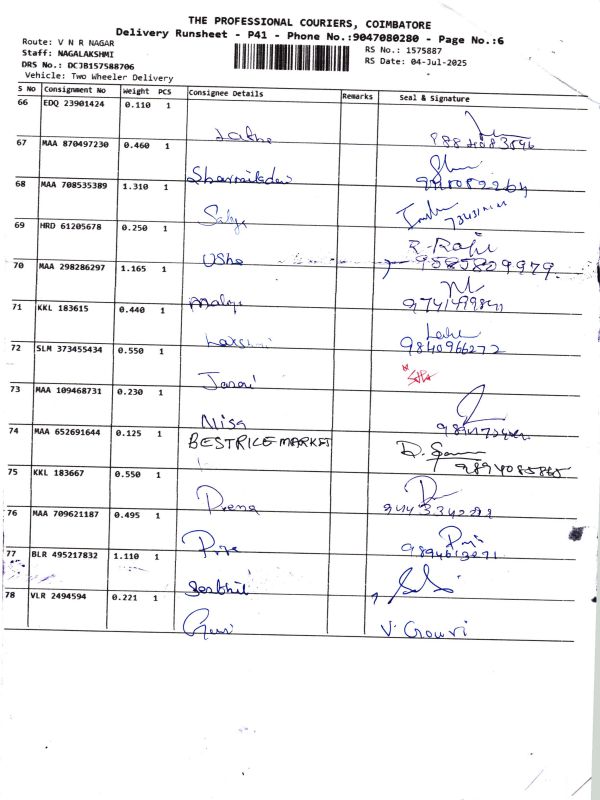 THE PROFESSIONAL COURIERS, COIMBATORE
Delivery Runsheet - P41 - Phone No.:9047080280 - Page No.:6
Route: V N R NAGAR
Staff: NAGALAKSHMI
DRS No.: DCJB157588706
Vehicle: Two Wheeler Delivery
RS No.: 1575887
RS Date: 04-Jul-2025
S No Consignment No Weight PCS Consignee Details Remarks Seal & Signature
66 EDQ 23901424 0.110 1
67 MAA 870497230 0.460 1
Sharmiladevi
68 MAA 708535389 1.310 1
Sathya
69 HRD 61205678 0.250 1
Usha R-Raji
9585809979.
70 MAA 298286297 1.165 1
71 KKL 183615 0.440 1
Laxsmi
9840966272
72 SLM 373455434 0.550 1
73 MAA 109468731 0.230 1
Nisa
74 MAA 652691644 0.125 1
BESTRICE MARKET
9894085865
75 KKL 183667 0.550 1
Prema
76 MAA 709621187 0.495 1
77 BLR 495217832 1.110 1
Senthil
78 VLR 2494594 0.221 1
Gowri V. Gowri